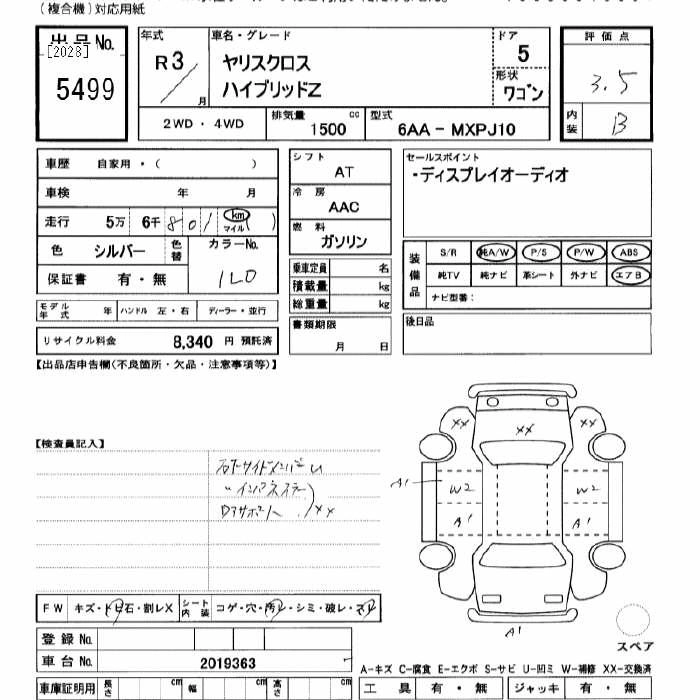 (複合機)対応用紙
出品No.
[2028]
5499
年式
R3
月
車名・グレード
ヤリスクロス
ハイブリッドZ
ドア
5
形状
ワゴン
評価点
3.5
内装
B
2WD・4WD
排気量
1500
cc
型式
6AA-MXPJ10
車歴
自家用・( )
車検
年 月
走行
5万 6千 801
km
マイル
色
シルバー
色替
カラーNo.
1L0
保証書
有・無
モデル年式
年
ハンドル 左・右
ディーラー・並行
リサイクル料金
8,340 円 預託済
シフト
AT
冷房
AAC
燃料
ガソリン
乗車定員
名
積載量
kg
総重量
kg
書類期限
月 日
セールスポイント
・ディスプレイオーディオ
装備品
S/R
純A/W
P/S
P/W
ABS
純TV
純ナビ
革シート
外ナビ
エアB
ナビ型番:
後日品
【出品店申告欄(不良箇所・欠品・注意事項等)】
【検査員記入】
右F サイドメンバー
〃 インパネステー
ロアサポート
XX
XX
XX
XX
A1
W2
W2
A1
A1
A1
スペア
FW
キズ・トビ石・割レX
シート内装
コゲ・穴・汚レ・シミ・破レ・スレ
登録No.
車台No.
2019363
車庫証明用
長さ
cm
幅
cm
高さ
cm
A-キズ C-腐食 E-エクボ S-サビ U-凹ミ W-補修 XX-交換済
工具
有・無
ジャッキ
有・無